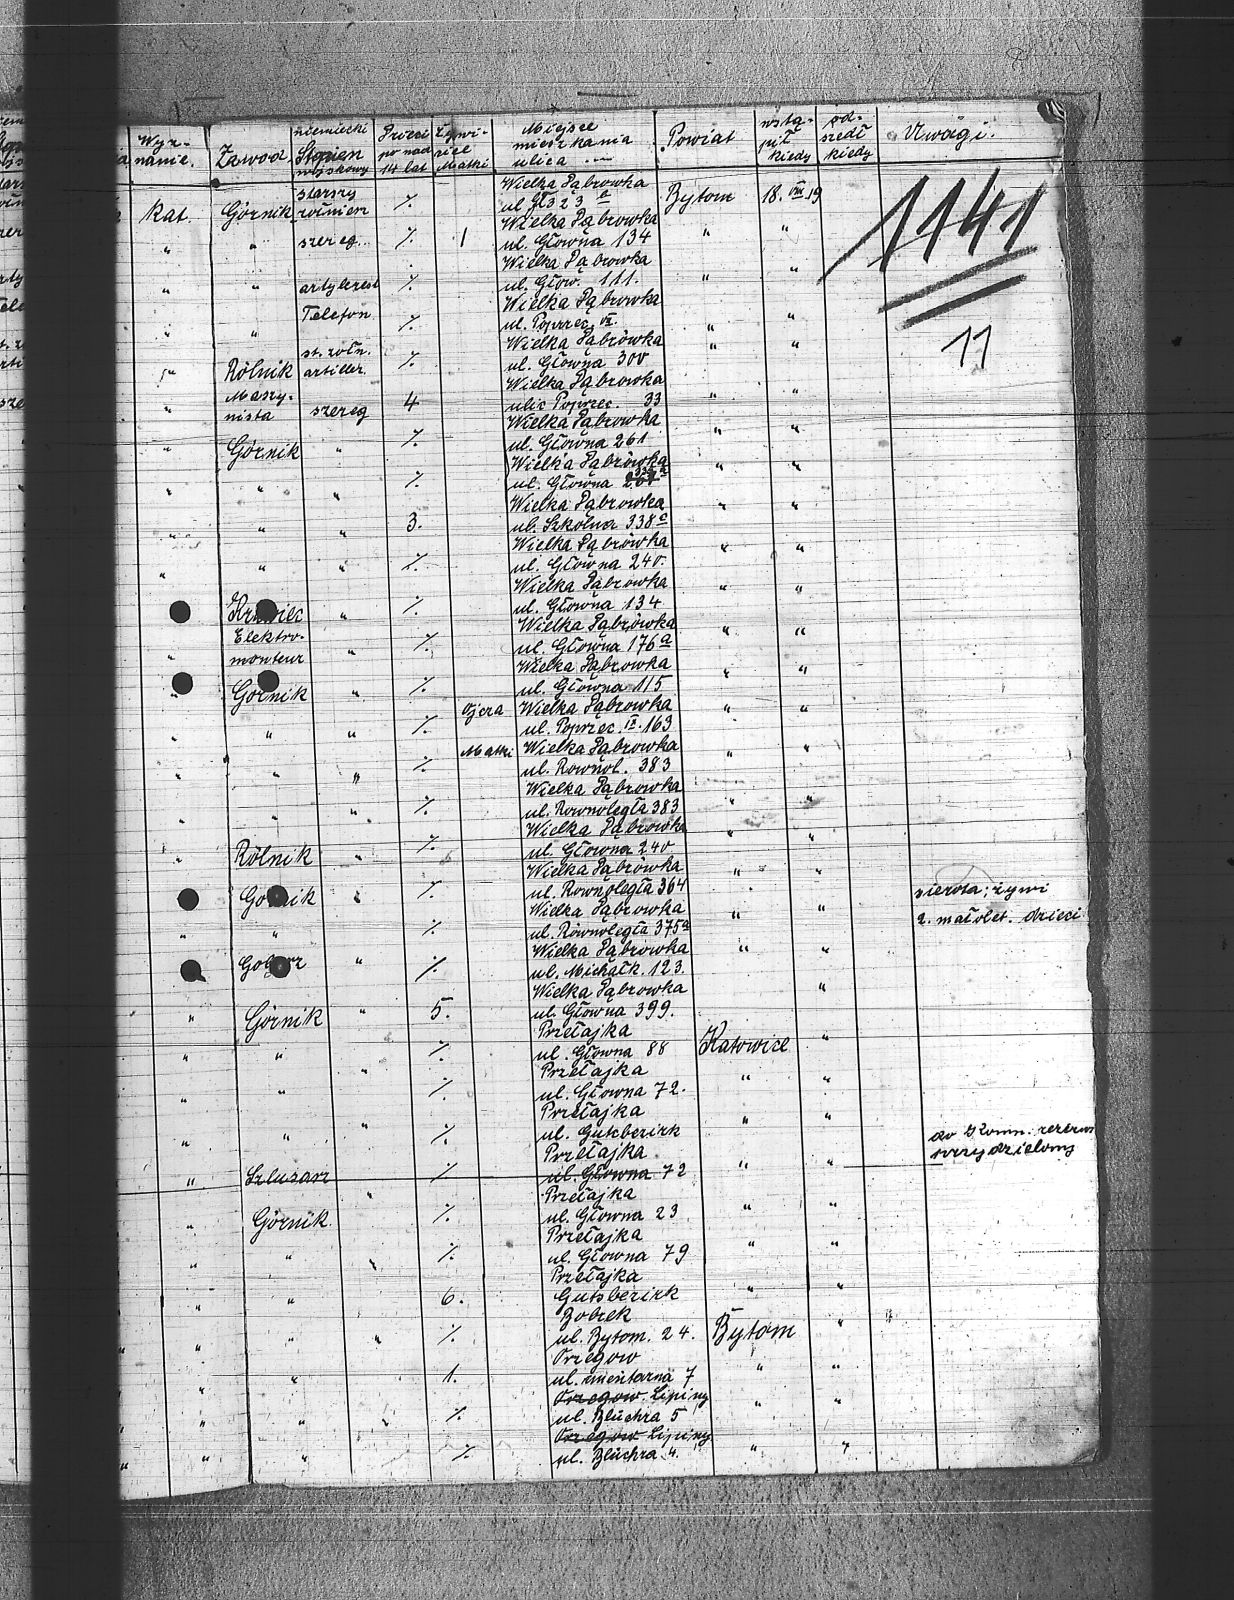 Wyz-
nanie.
Zawod.
niemiecki
Stopien
wojskowy
Dzieci
po nad
14 lat
Żywi-
ciel
Matki
Miejsce
mieszkania
ulica
Powiat
wstą-
pił
kiedy
od-
szedł
kiedy
Uwagi.
1141
11
kat. Górnik starszy żołnierz ·/. Wielka Dąbrowka Bytom 18. VIII 19
ul Gł 323 a
" " szereg. ·/. 1 Wielka Dąbrowka " "
ul. Głowna 134
" " artylerzst ·/. Wielka Dąbrowka " "
ul. Głow. 111.
" Telefon ·/. Wielka Dąbrowka " "
ul. Poprzec.
" Rólnik st. żołn. artiller. ·/. Wielka Dąbrówka " "
ul. Głowna 300
" Maszy-nista szereg 4 Wielka Dąbrowka " "
ulic Poprzec. 33
" Górnik " ·/. Wielka Dąbrowka " "
ul. Głowna 261
" " " ·/. Wielka Dąbrówka " "
ul. Głowna
" " " 3. Wielka Dąbrowka " "
ul. Szkolna 338 c
" " " ·/. Wielka Dąbrówka " "
ul. Głowna 240.
Krawiec " ·/. Wielka Dąbrowka " "
ul. Głowna 134
" Elektro-monteur " ·/. Wielka Dąbrówka " "
ul. Głowna 176 a
" Górnik " ·/. Wielka Dąbrowka " "
ul. Głowna 115
" " " ·/. Ojca Wielka Dąbrowka " "
ul. Poprzec. 163
" " " ·/. Matki Wielka Dąbrowka " "
ul. Rownol. 383
" " " ·/. Wielka Dąbrowka " "
ul. Rownoległa 383
" Rólnik " ·/. Wielka Dąbrowka " "
ul. Głowna 240
Górnik " ·/. Wielka Dąbrówka " "
ul. Rownoległa 364
sierota; żywi
2. małolet. dzieci
" " ·/. Wielka Dąbrowka " "
ul. Równoległa 375 a
" ·/. Wielka Dąbrowka " "
ul. Michałk. 123.
" Górnik " 5. Wielka Dąbrowka "
ul. Głowna 399.
" " ·/. Przełajka Katowice "
ul. Głowna 88
" " ·/. Przełajka " "
ul. Głowna 72.
" " " ·/. Przełajka " "
ul. Gutsbezirk
do Komn. rezerw
przydzielony
" Szlusarz ·/. Przełajka " "
ul. Głowna 72
" Górnik " ·/. Przełajka " "
ul. Głowna 23
" " " ·/. Przełajka " "
ul. Głowna 79
" " 6. Przełajka " "
Gutsbezirk
" " ·/. Bobrek Bytom "
ul. Bytom. 24.
" " 1. Orzegow " "
ul. mentarna 7
" " " ·/. Orzegow Lipiny " "
ul. Blüchra 5
" " " ·/. Orzegow Lipiny " "
ul. Blüchra 4.